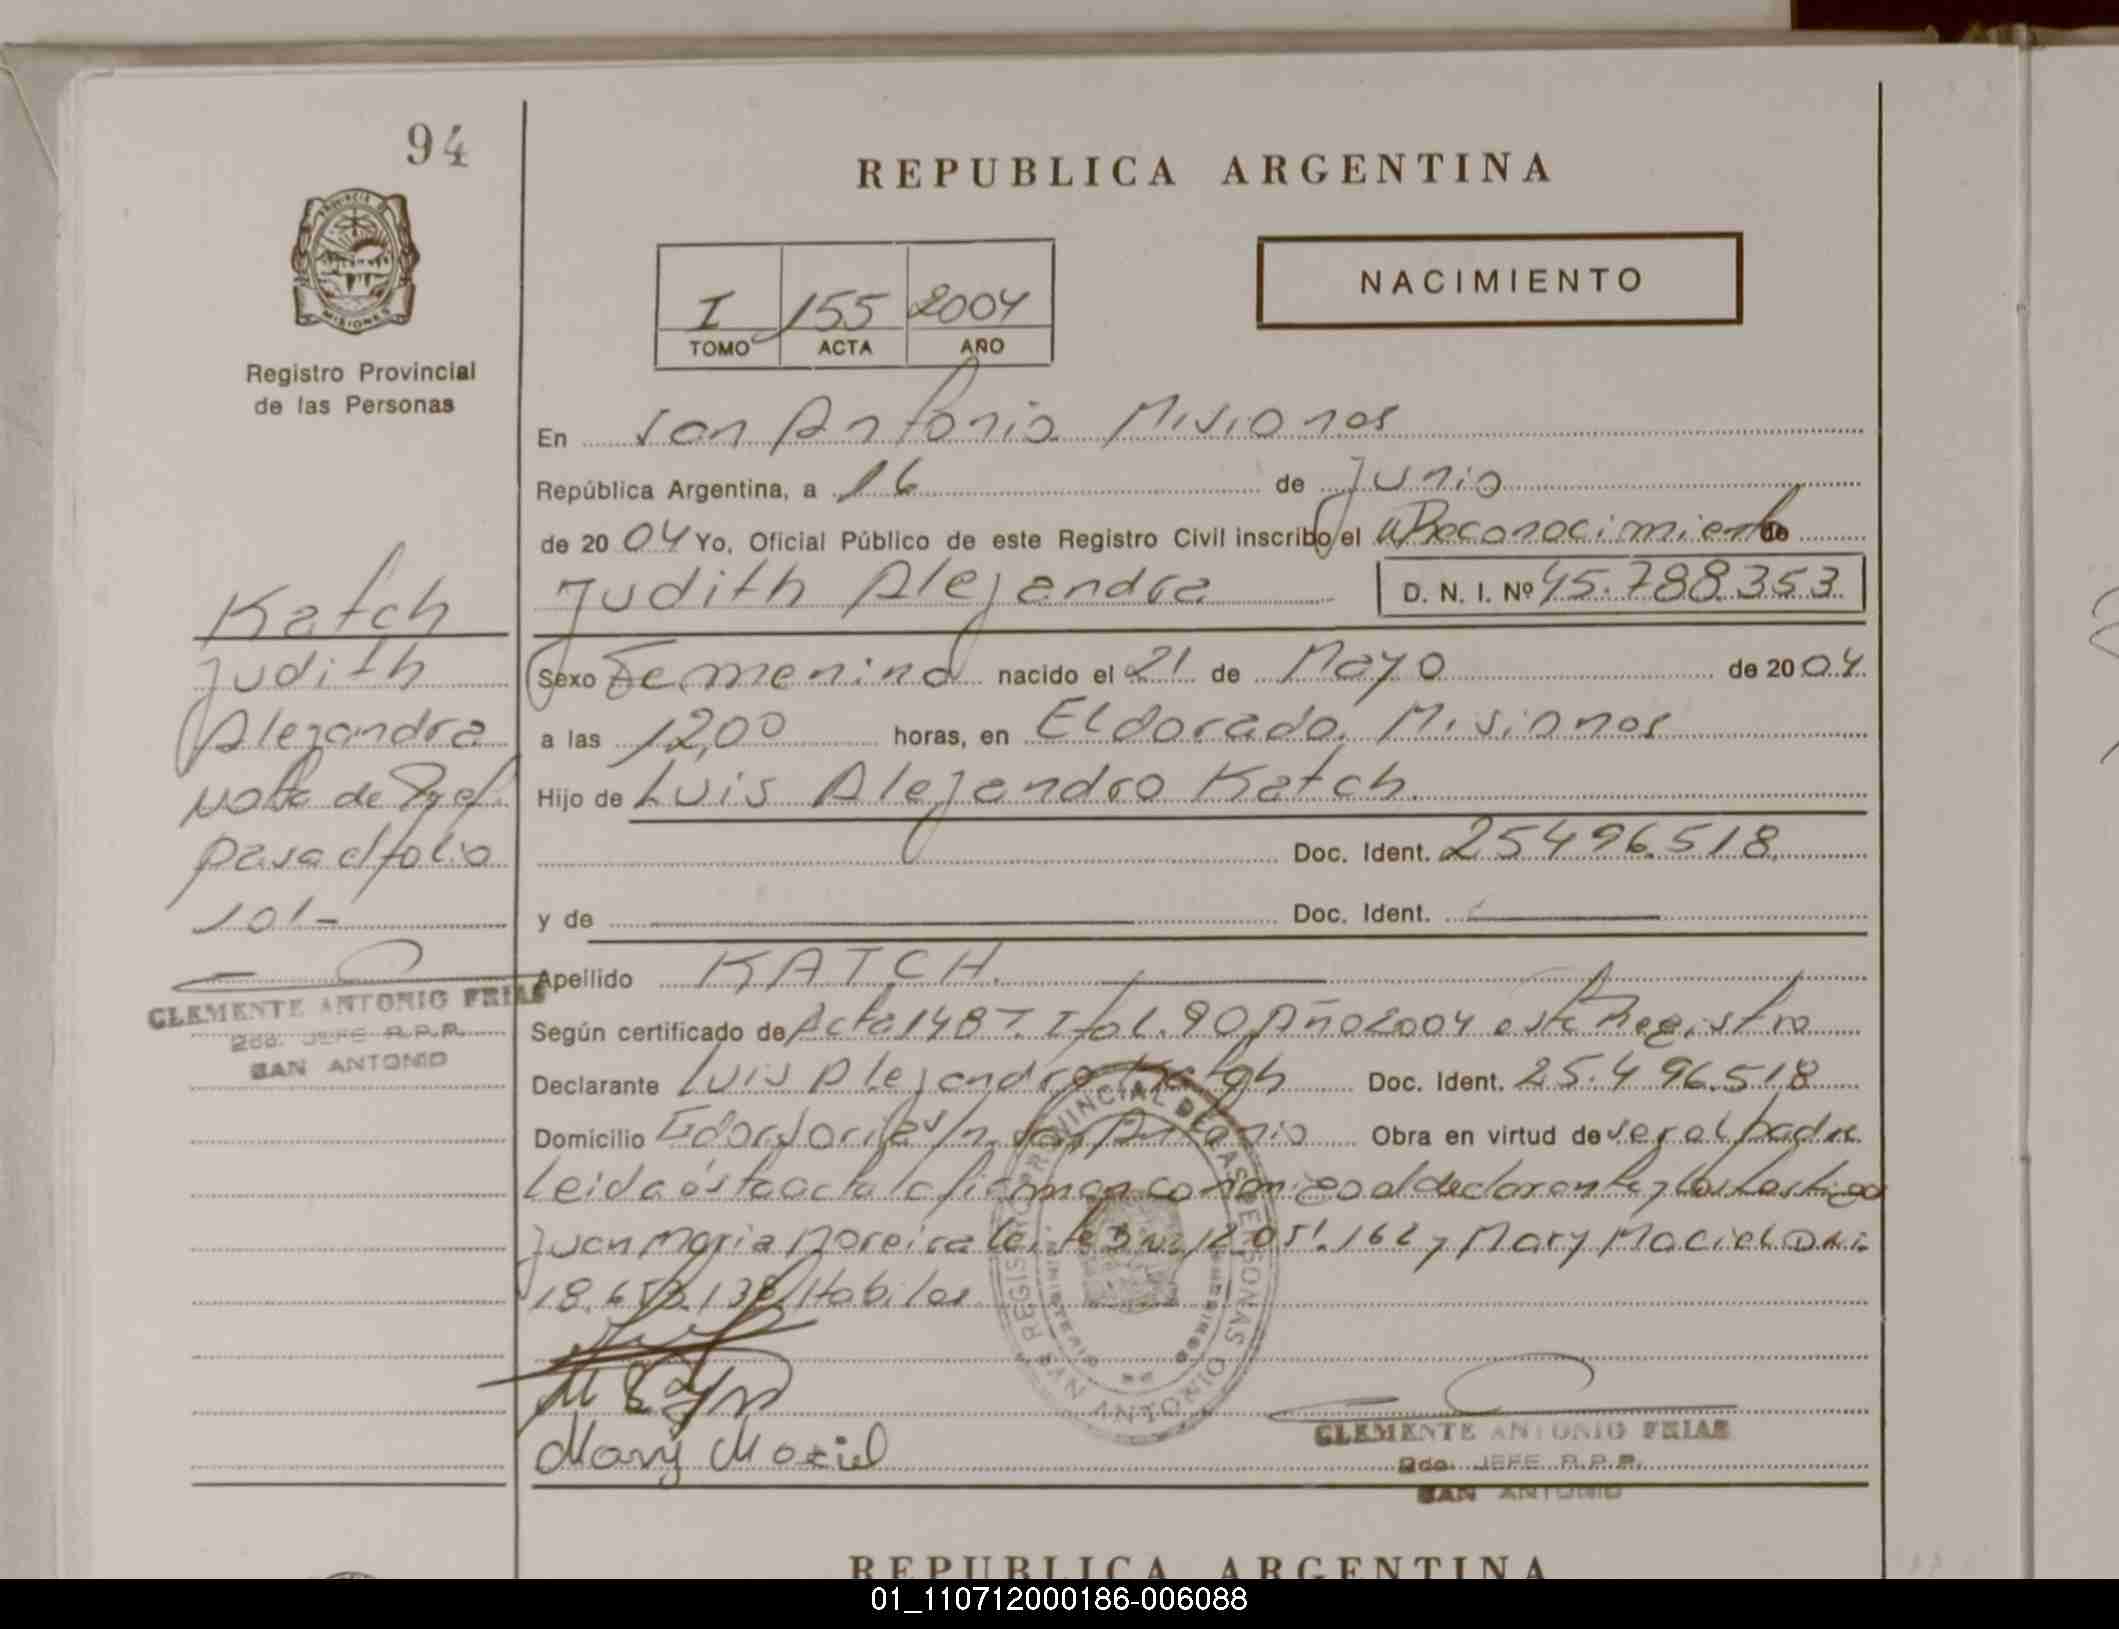 94
REPUBLICA ARGENTINA
PROVINCIA DE
MISIONES
Registro Provincial
de las Personas
I 155 2004
TOMO ACTA AÑO
NACIMIENTO
En San Antonio Misiones
República Argentina, a 16 de Junio
de 2004 Yo, Oficial Público de este Registro Civil inscribo el Reconocimiento de
Judith Alejandra D. N. I. Nº 45.788.353
Sexo Femenino nacido el 21 de Mayo de 2004
a las 12,00 horas, en Eldorado, Misiones
Hijo de Luis Alejandro Katch
Doc. Ident. 25496.518
y de Doc. Ident.
Apellido KATCH.
Según certificado de Acta 148 T I fol. 90 Año 2004 este Registro
Declarante Luis Alejandro Katch Doc. Ident. 25.496.518
Domicilio s/n. San Antonio Obra en virtud de ser el padre
Leida ésta acta la firman conmigo el declarante y los testigos
Juan Maria Moreira 12.051.162 y Mary Maciel D.N.I.
18.653.138 Habiles
Mary Maciel
CLEMENTE ANTONIO FRIAS
2do. JEFE R.P.P.
SAN ANTONIO
REGISTRO PROVINCIAL DE LAS PERSONAS
SAN ANTONIO
Katch
Judith
Alejandra
Nota de Ref.
pasa al folio
101-
CLEMENTE ANTONIO FRIAS
2do. JEFE R.P.P.
SAN ANTONIO
REPUBLICA ARGENTINA
01_110712000186-006088